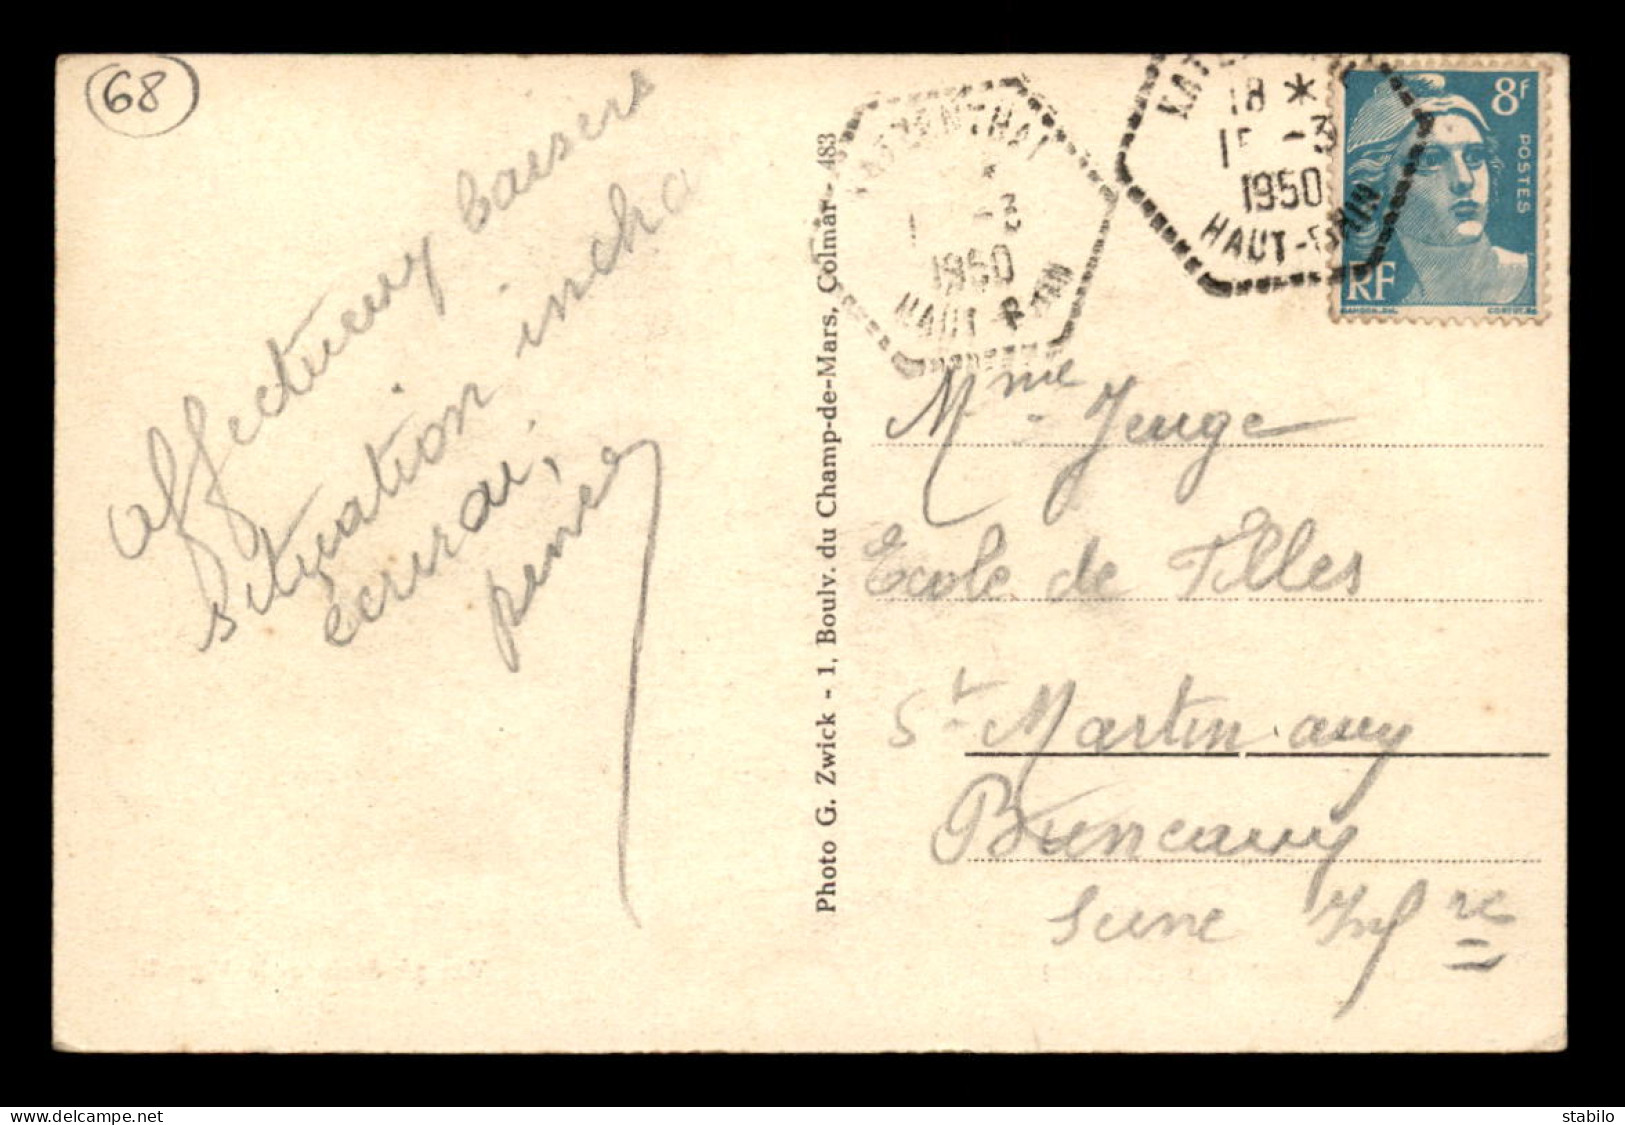 68
affectueux baisers
situation inch
écrirai,
Photo G. Zwick - 1, Boulv. du Champ-de-Mars, Colmar - 483
KATZENTHAL
-3
1950
HAUT-RHIN
18 *
15 -3
1950
HAUT-RHIN
8F
POSTES
RF
GANDON.DEL.
CORTOT.SC
Mme Jeuge
Ecole de Filles
St Martin aux
Buneaux
Seine Infre
stabilo